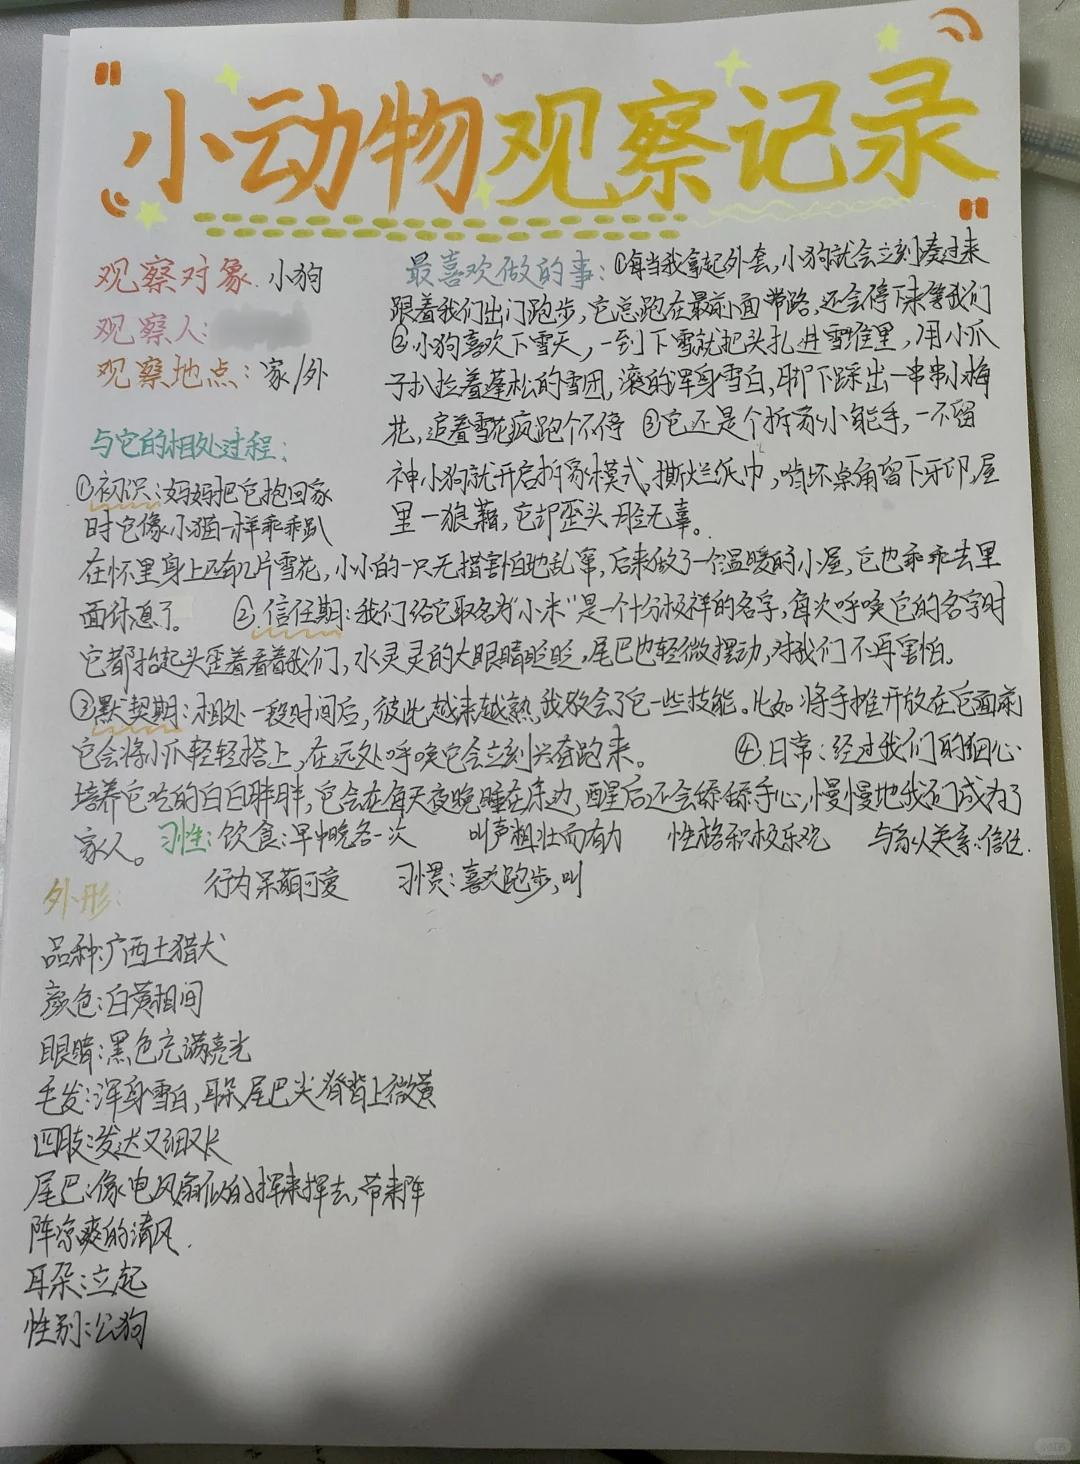 小动物观察记录
观察对象.小狗
观察人:
观察地点:家/外
最喜欢做的事:①每当我拿起外套,小狗就会立刻凑过来
跟着我们出门跑步,它总跑在最前面带路,还会停下来等我们
②小狗喜欢下雪天,一到下雪就把头扎进雪堆里,用小爪
子扒拉着蓬松的雪团,滚的浑身雪白,脚下踩出一串串小梅
花,追着雪花疯跑个不停 ③它还是个拆家小能手,一不留
神小狗就开启拆家模式,撕烂纸巾,啃坏桌角留下牙印,屋
里一狼藉,它却歪头一脸无辜。
与它的相处过程:
①初识:妈妈把它抱回家
时它像小猫一样乖乖趴
在怀里身上还有几片雪花,小小的一只无措害怕地乱窜,后来做了一个温暖的小屋,它也乖乖去里
面休息了。 ②.信任期:我们给它取名为"小米"是一个十分吉祥的名字,每次呼唤它的名字时
它都抬起头歪着看着我们,水灵灵的大眼睛眨眨,尾巴也轻微摆动,对我们不再害怕。
③默契期:相处一段时间后,彼此越来越熟,我教会了它一些技能。比如将手摊开放在它面前
它会将小爪轻轻搭上,在远处呼唤它会立刻兴奋跑来。 ④.日常:经过我们的细心
培养它吃的白白胖胖,它会在每天夜晚睡在床边,醒后还会舔舔手心,慢慢地我们成为了
家人。 习性:饮食:早中晚各一次 叫声粗壮而有力 性格积极乐观 与家人关系:信任.
行为呆萌可爱 习惯:喜欢跑步,叫
外形:
品种:广西土猎犬
颜色:白黄相间
眼睛:黑色充满亮光
毛发:浑身雪白,耳朵,尾巴尖脊背上微黄
四肢:发达又细又长
尾巴:像电风扇似的挥来挥去,带来阵
阵凉爽的清风.
耳朵:立起
性别:公狗